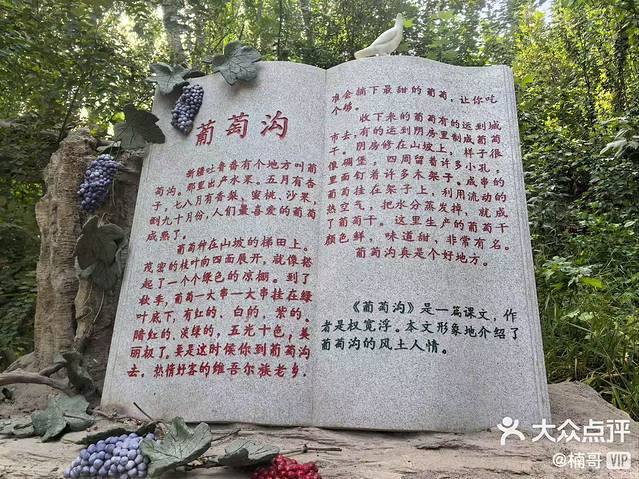 葡萄沟
新疆吐鲁番有个地方叫葡
萄沟。那里出产水果。五月有杏
子，七八月有香梨、蜜桃、沙果，
到九十月份，人们最喜爱的葡萄
成熟了。
葡萄种在山坡的梯田上。
茂密的枝叶向四面展开，就像搭
起了一个个绿色的凉棚。到了
秋季，葡萄一大串一大串挂在绿
叶底下，有红的、白的、紫的、
暗红的、淡绿的，五光十色，美
丽极了。要是这时候你到葡萄沟
去，热情好客的维吾尔族老乡，
准会摘下最甜的葡萄，让你吃
个够。
收下来的葡萄有的运到城
市去，有的运到阴房里制成葡萄
干。阴房修在山坡上，样子很
像碉堡，四周留着许多小孔，
里面钉着许多木架子。成串的
葡萄挂在架子上，利用流动的
热空气，把水分蒸发掉，就成
了葡萄干。这里生产的葡萄干
颜色鲜，味道甜，非常有名。
葡萄沟真是个好地方。
《葡萄沟》是一篇课文，作
者是权宽浮。本文形象地介绍了
葡萄沟的风土人情。
大众点评
@楠哥 VIP